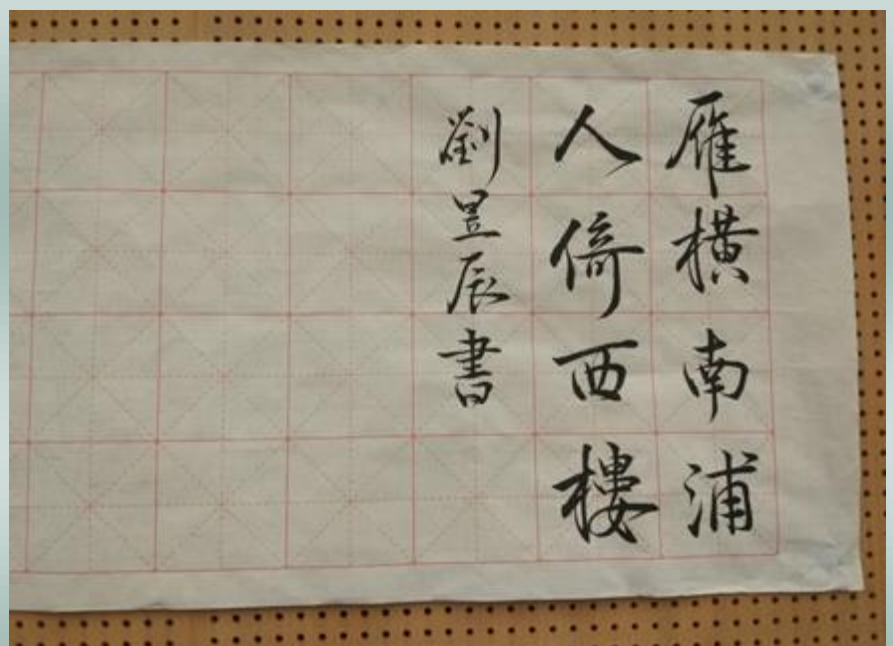 雁橫南浦
人倚西樓
劉昱辰書